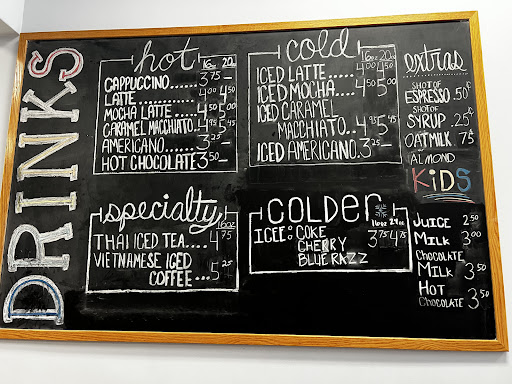 DRINKS
hot
16oz 20oz
CAPPUCCINO...... 3.75 —
LATTE............ 4.00 4.50
MOCHA LATTE.... 4.50 5.00
CARAMEL MACCHIATO.. 4.95 5.45
AMERICANO...... 3.25 —
HOT CHOCOLATE 3.50 —
specialty
16oz
THAI ICED TEA.... 4.75
VIETNAMESE ICED
COFFEE... 5.25
cold
16oz 20oz
ICED LATTE..... 4.00 4.50
ICED MOCHA..... 4.50 5.00
ICED CARAMEL
MACCHIATO.. 4.95 5.45
ICED AMERICANO. 3.25 —
COLDER
16oz 24oz
ICEE: COKE 3.75 4.75
CHERRY
BLUE RAZZ
extras
SHOT OF
ESPRESSO .50¢
SHOT OF
SYRUP .25¢
OATMILK .75¢
ALMOND
KiDS
JUICE 2.50
MILK 3.00
CHOCOLATE
MILK 3.50
HOT
CHOCOLATE 3.50